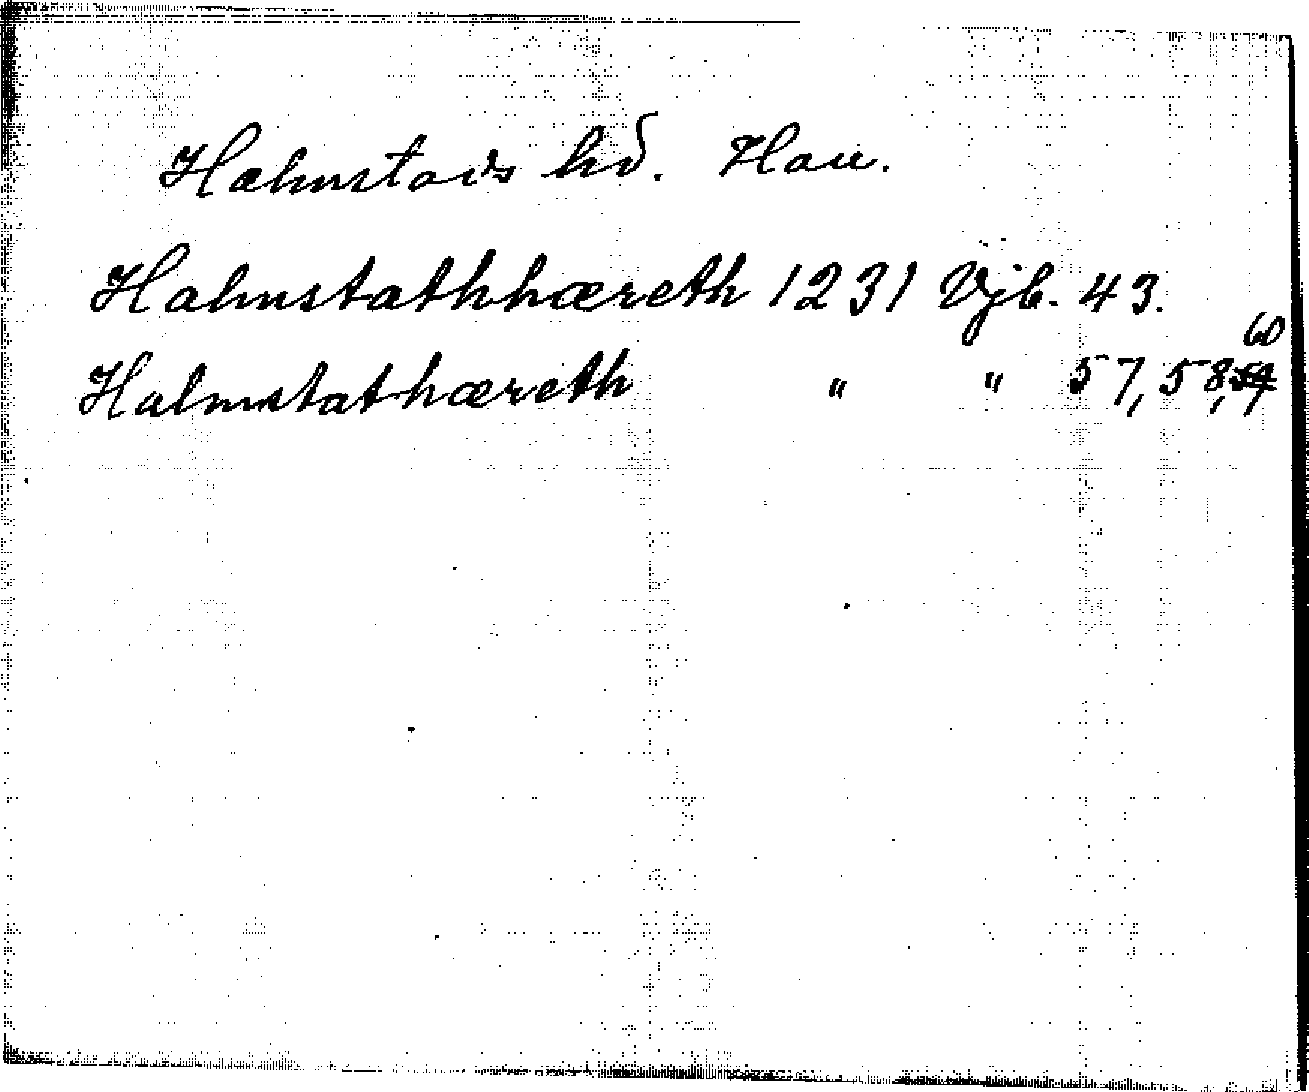 Halmstads hd. Hall.
Halmstathhæreth 1231 Vjb. 43.
Halmstathæreth " " 57, 58, 60